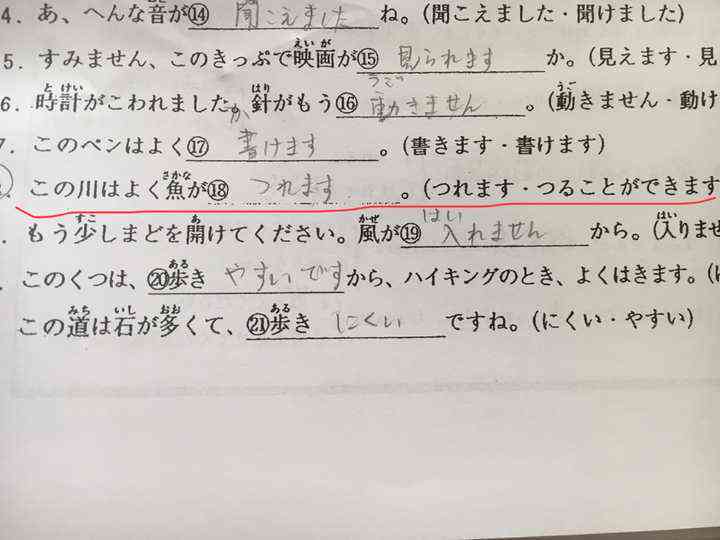 4. あ、へんな音が⑭ 聞こえました ね。(聞こえました・聞けました)
5. すみません、このきっぷで映画が⑮ 見られます か。(見えます・見
6. 時計がこわれましたか、針がもう⑯ 動きません 。(動きません・動け
7. このペンはよく⑰ 書けます 。(書きます・書けます)
この川はよく魚が⑱ つれます 。(つれます・つることができます
. もう少しまどを開けてください。風が⑲ 入れません から。(入りませ
. このくつは、⑳歩き やすいです から、ハイキングのとき、よくはきます。(
この道は石が多くて、㉑歩き にくい ですね。(にくい・やすい)